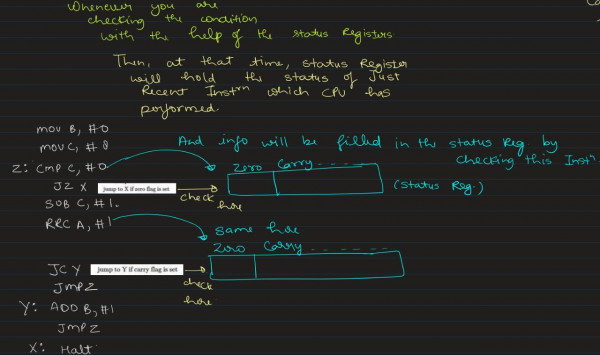 Whenever you are
checking the condition
with the help of the status Registers
Then, at that time, status Register
will hold the status of Just
Recent Instrn which CPU has
performed.
mov B, #0
mov C, #8
And info will be filled in the status Reg. by
checking this Instn
Z: CMP C, #0
zero Carry - - - - -
JZ X jump to X if zero flag is set
check
here
(Status Reg.)
SUB C, #1
RRC A, #1
same here
zero Carry - - - - - -
JC Y jump to Y if carry flag is set
check
here
JMP Z
Y: ADD B, #1
JMP Z
X: Halt